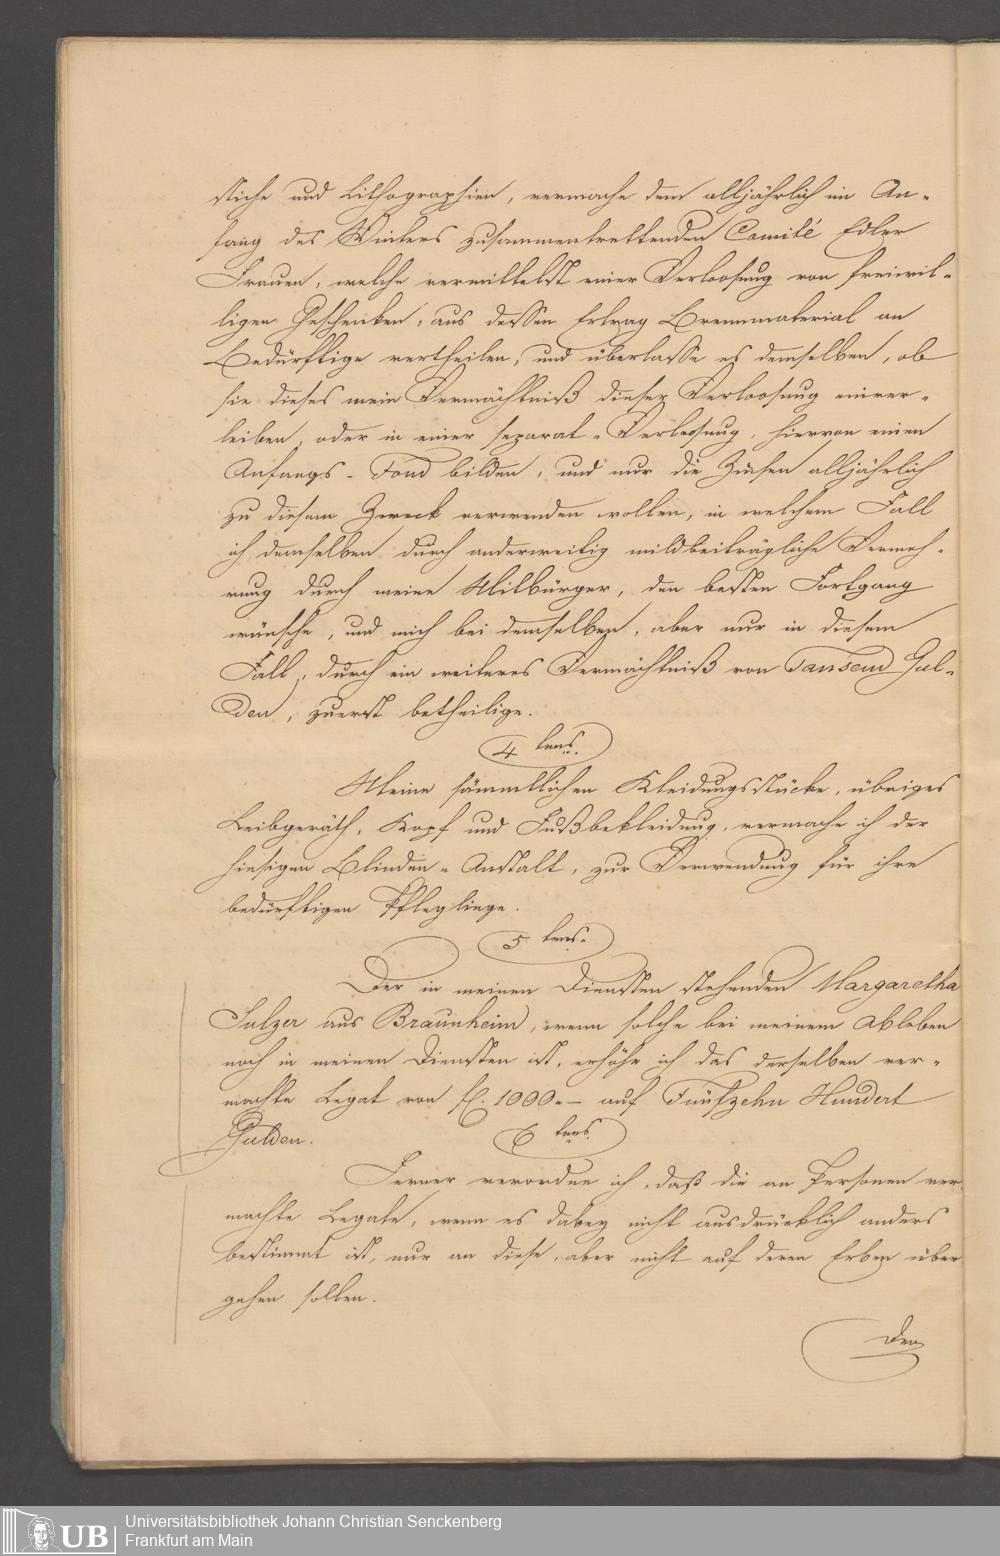 stiche und Lithographien, vermache dem alljährlich im An-
fang des Winters zusammentrettenden Comité Edler
Frauen, welche vermittelst einer Verloosung von freiwil-
ligen Geschenken, aus dessen Ertrag Brennmaterial an
Bedürftige vertheilen, und überlasse es demselben, ob
sie dieses mein Vermächtniß dieser Verloosung einver-
leiben, oder in einer separat-Verloosung, hiervon einen
Anfangs-Fond bilden, und nur die Zinsen alljährlich
zu diesem Zweck verwenden wollen, in welchem Fall
ich demselben durch anderweitig mildbeiträgliche Vermeh-
rung durch meine Mitbürger, den besten Fortgang
wünsche, und mich bei demselben, aber nur in diesem
Fall, durch ein weiteres Vermächtniß von Tausend Gul-
den, zuerst betheilige.
4 tens.
Meine sämmtlichen Kleidungsstücke, übriges
Leibgeräth, Kopf und Fußbekleidung, vermache ich der
hiesigen Blinden-Anstalt, zur Verwendung für ihre
bedürftigen Pfleglinge.
5 tens.
Der in meinen Diensten stehenden Margaretha
Sulzer aus Braunheim, wenn solche bei meinem Ableben
noch in meinen Diensten ist, erhöhe ich das derselben ver-
machte Legat von fl. 1000.- auf Fünfzehn Hundert
Gulden.
6 tens.
Ferner verordne ich, daß die an Personen ver-
machte Legate, wenn es dabey nicht ausdrücklich anders
bestimmt ist, nur an diese, aber nicht auf deren Erben über
gehen sollen.
Den
UB
Universitätsbibliothek Johann Christian Senckenberg
Frankfurt am Main